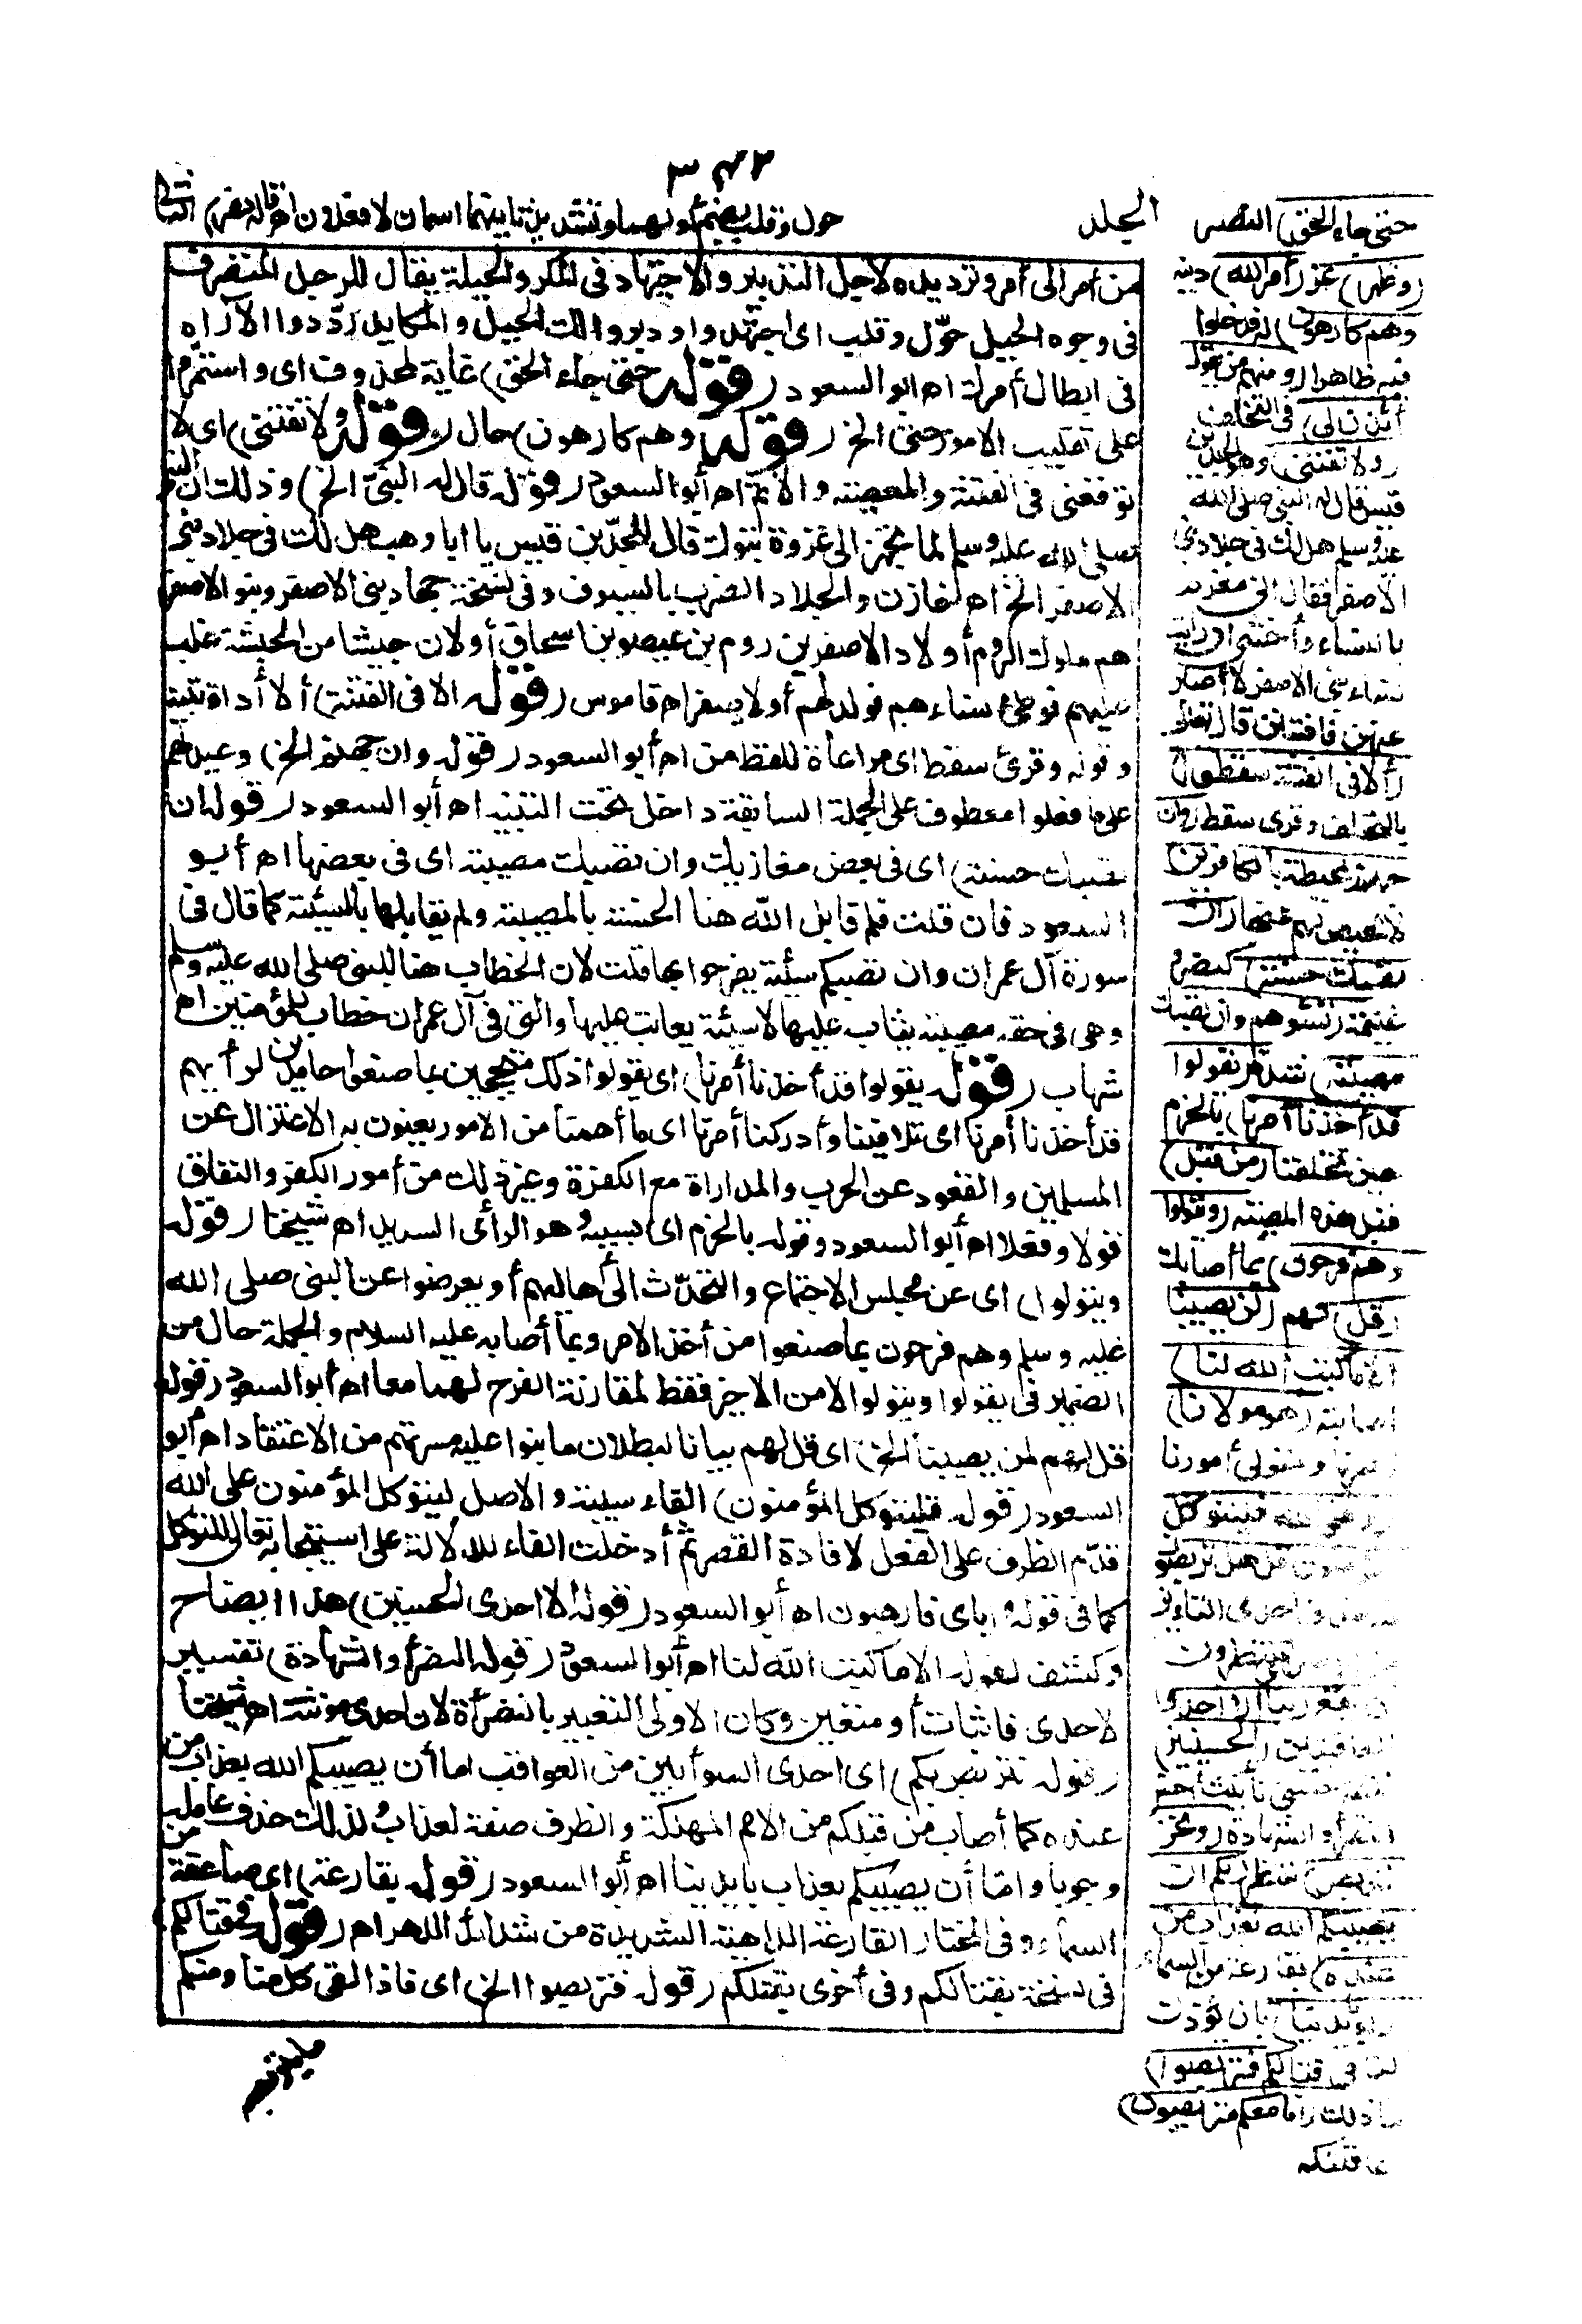 ٣٤٢
الجلد
من أمر الى أمر وترديده لاجل التدبير والاجتهاد فى المكر والحيلة يقال للرجل المتصرف
فى وجوه الحيل حوّل وقلب اى اجتهدوا ودبروا لك الحيل والمكايد ردّدوا الآراء
فى ابطال أمرك اه ابو السعود (قوله حتى جاء الحق) غاية لمحذوف اى واستمرّوا
على تقليب الامور حتى الخ (قوله وهم كارهون) حال (قوله ولا تفتنى) اى لا
توقعنى فى الفتنة والمعصية والاثم اه أبو السعود (قوله قال له النبىّ الخ) وذلك ان النبى
صلى الله عليه وسلم لما تجهز الى غزوة تبوك قال للجدّ بن قيس يا ابا وهب هل لك فى جلاد بنى
الاصفر الخ اه خازن والجلاد الضرب بالسيوف وفى نسخة جهاد بنى الاصفر وبنو الاصفر
هم ملوك الروم أولاد الاصفر بن روم بن عيصو بن اسحاق أو لان جيشا من الحبشة غلب
عليهم فوطئ نساءهم فولد لهم أولاد صفر اه قاموس (قوله الا فى الفتنة) ألا أداة تنبيه
وقوله وقرئ سقط اى مراعاة للفظ من اه أبو السعود (قوله وان جهنم الخ) وعيد لهم
على ما فعلوا معطوف على الجملة السابقة داخل تحت التنبيه اه أبو السعود (قوله ان
تصبك حسنة) اى فى بعض مغازيك وان تصبك مصيبة اى فى بعضها اه أبو
السعود فان قلت فلم قابل الله هنا الحسنة بالمصيبة ولم يقابلها بالسيئة كما قال فى
سورة آل عمران وان تصبكم سيئة يفرحوا بها قلت لان الخطاب هنا للنبى صلى الله عليه وسلم
وهى فى حقه مصيبة يثاب عليها لا سيئة يعاتب عليها والتى فى آل عمران خطاب للمؤمنين اه
شهاب (قوله يقولوا قد أخذنا أمرنا) اى يقولوا ذلك متبجحين بما صنعوا حامدين لرأيهم
قد أخذنا أمرنا اى تلافينا وأدركنا أمرنا اى ما أهمنا من الامور يعنون به الاعتزال عن
المسلمين والقعود عن الحرب والمداراة مع الكفرة وغير ذلك من أمور الكفر والنفاق
قولا وفعلا اه أبو السعود وقوله بالحزم اى بسببه وهو الرأى السديد اه شيخنا (قوله
ويتولوا) اى عن مجلس الاجتماع والتحدّث الى أهاليهم أو يعرضوا عن النبى صلى الله
عليه وسلم وهم فرحون بما صنعوا من أخذ الامر وبما أصابه عليه السلام والجملة حال من
الضمير فى يقولوا ويتولوا لا من الاخير فقط لمقارنة الفرح لهما معا اه أبو السعود (قوله
قل لهم لن يصيبنا الخ) اى قل لهم بيانا لبطلان ما بنوا عليه مسرتهم من الاعتقاد اه أبو
السعود (قوله فليتوكل المؤمنون) الفاء سببية والاصل ليتوكل المؤمنون على الله
قدّم الظرف على الفعل لافادة القصر ثم أدخلت الفاء للدلالة على استيجابه تعالى للتوكل
كما فى قوله واياى فارهبون اه أبو السعود (قوله الا احدى الحسنيين) هذا ايضاح
وكشف لقوله الا ما كتب الله لنا اه أبو السعود (قوله النصر أو الشهادة) تفسير
لاحدى فاثبات أو متعين وكان الاولى التعبير بالنصرة لان احدى مؤنثة اه شيخنا
(قوله نتربص بكم) اى احدى السوأيين من العواقب اما أن يصيبكم الله بعذاب من
عنده كما أصاب من قبلكم من الامم المهلكة والظرف صفة لعذاب ولذلك حذف عامله
وجوبا واما أن يصيبكم بعذاب بايدينا اه أبو السعود (قوله بقارعة) اى صاعقة من
السماء وفى المختار القارعة الداهية الشديدة من شدائد الدهر اه (قوله فى قتالكم)
فى نسخة بقتالكم وفى أخرى بقتلكم (قوله فتربصوا الخ) اى فاذا لقى كل منا ومنكم
حتى جاء الحق) النصر
(وظهر) عز (أمر الله) دينه
(وهم كارهون) له فدخلوا
فيه ظاهرا (ومنهم من يقول
ائذن لى) فى التخلف
(ولا تفتنى) وهو الجد بن
قيس قال له النبى صلى الله
عليه وسلم هل لك فى جلاد بنى
الاصفر فقال انى مغرم
بالنساء وأخشى ان رأيت
نساء بنى الاصفر لا أصبر
عنهن فافتتن قال تعالى
(ألا فى الفتنة سقطوا)
بالتخلف وقرئ سقط (وان
جهنم لمحيطة بالكافرين)
لا محيص لهم عنها (ان
تصبك حسنة) كنصر و
غنيمة (تسؤهم وان تصبك
مصيبة) شدة (يقولوا
قد أخذنا أمرنا) بالحزم
حين تخلفنا (من قبل)
قبل هذه المصيبة (ويتولوا
وهم فرحون) بما أصابك
(قل) لهم (لن يصيبنا
الا ما كتب الله لنا)
اصابته (هو مولانا)
ناصرنا ومتولى أمورنا
(وعلى الله فليتوكل
المؤمنون قل هل تربصون)
فيه حذف احدى التاءين
تنتظرون
الا احدى
العاقبتين (الحسنيين)
تثنية حسنى تأنيث أحسن
النصر أو الشهادة (ونحن
نتربص) ننتظر (بكم ان
يصيبكم الله بعذاب من
عنده) بقارعة من السماء
(او بايدينا) بان يؤذن
لنا فى قتالكم (فتربصوا)
بنا ذلك (انا معكم متربصون)
عاقبتكم